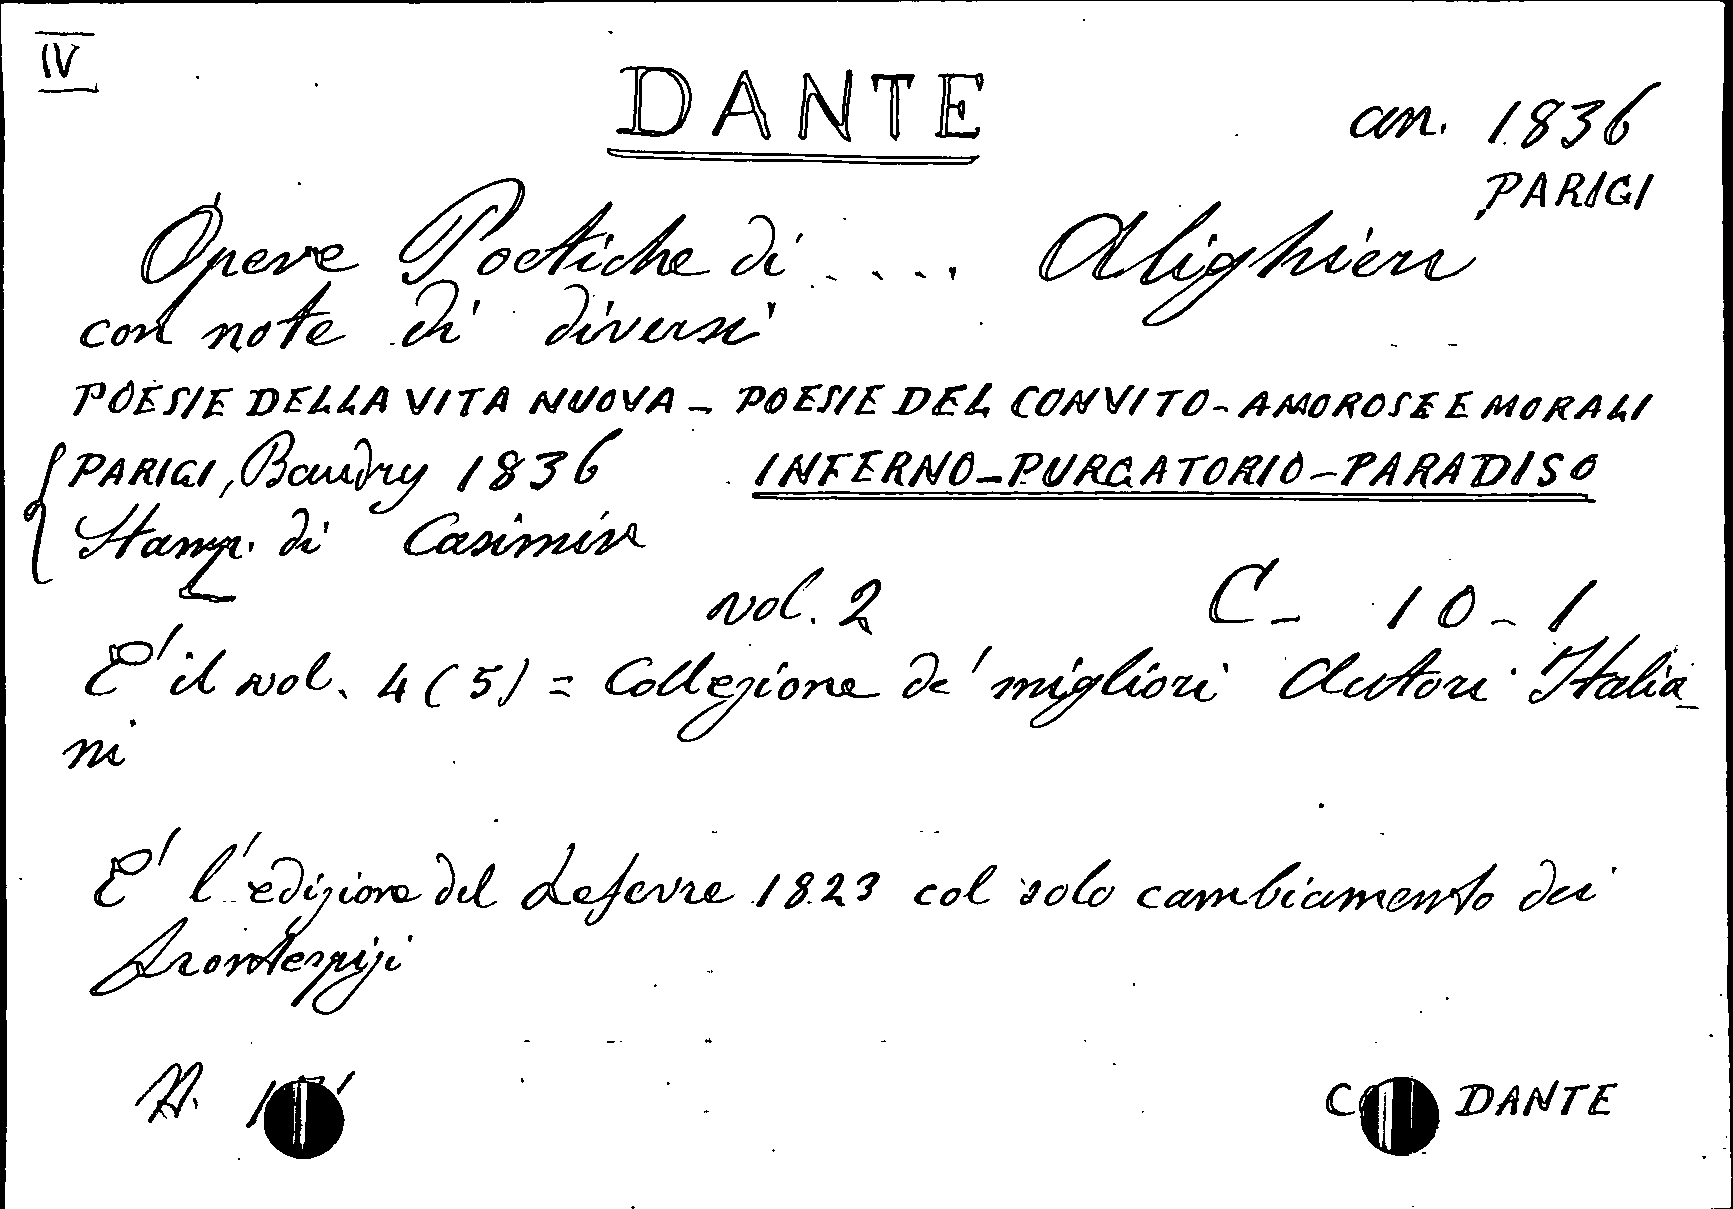 IV
DANTE
an. 1836
PARIGI
Opere Poetiche di .... Alighieri
con note di diversi
POESIE DELLA VITA NUOVA - POESIE DEL CONVITO - AMOROSE E MORALI
PARIGI, Baudry 1836 INFERNO - PURGATORIO - PARADISO
Stamp. di Casimir
vol. 2 C - 10 - 1
E' il vol. 4 (5) = Collezione de' migliori Autori Italia-
ni
E' l'edizione del Lefevre 1823 col solo cambiamento dei
frontespizi
N.
DANTE